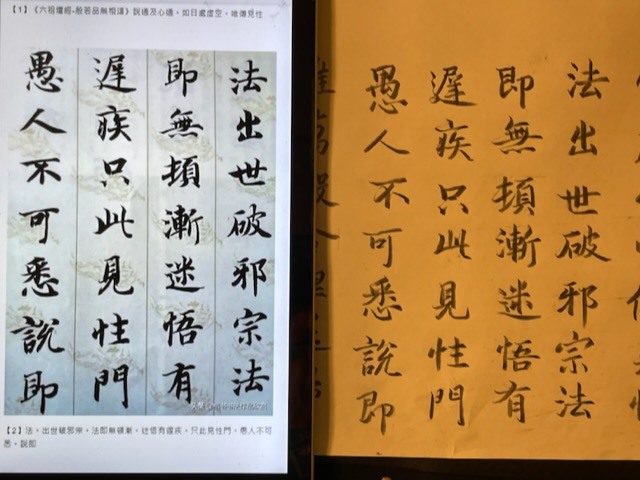 【1】《六祖壇經-般若品無相頌》說通及心通，如日處虛空。唯傳見性
法出世破邪宗法
即無頓漸迷悟有
遲疾只此見性門
愚人不可悉說即
【2】法，出世破邪宗。法即無頓漸，迷悟有遲疾。只此見性門，愚人不可
悉。說即
法出世破邪宗法
即無頓漸迷悟有
遲疾只此見性門
愚人不可悉說即